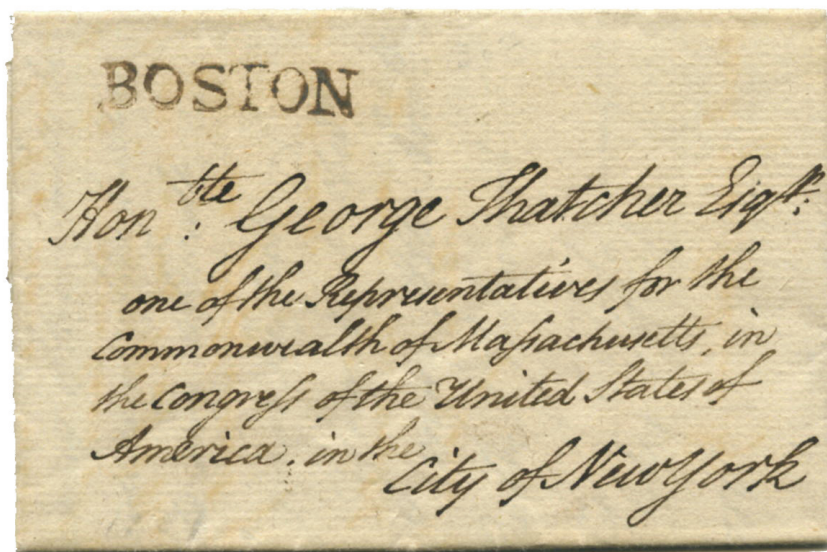 BOSTON
Honble: George Thatcher Esqr:
one of the Representatives for the
Commonwealth of Maſsachusetts, in
the Congreſs of the United States of
America. in the
City of New York